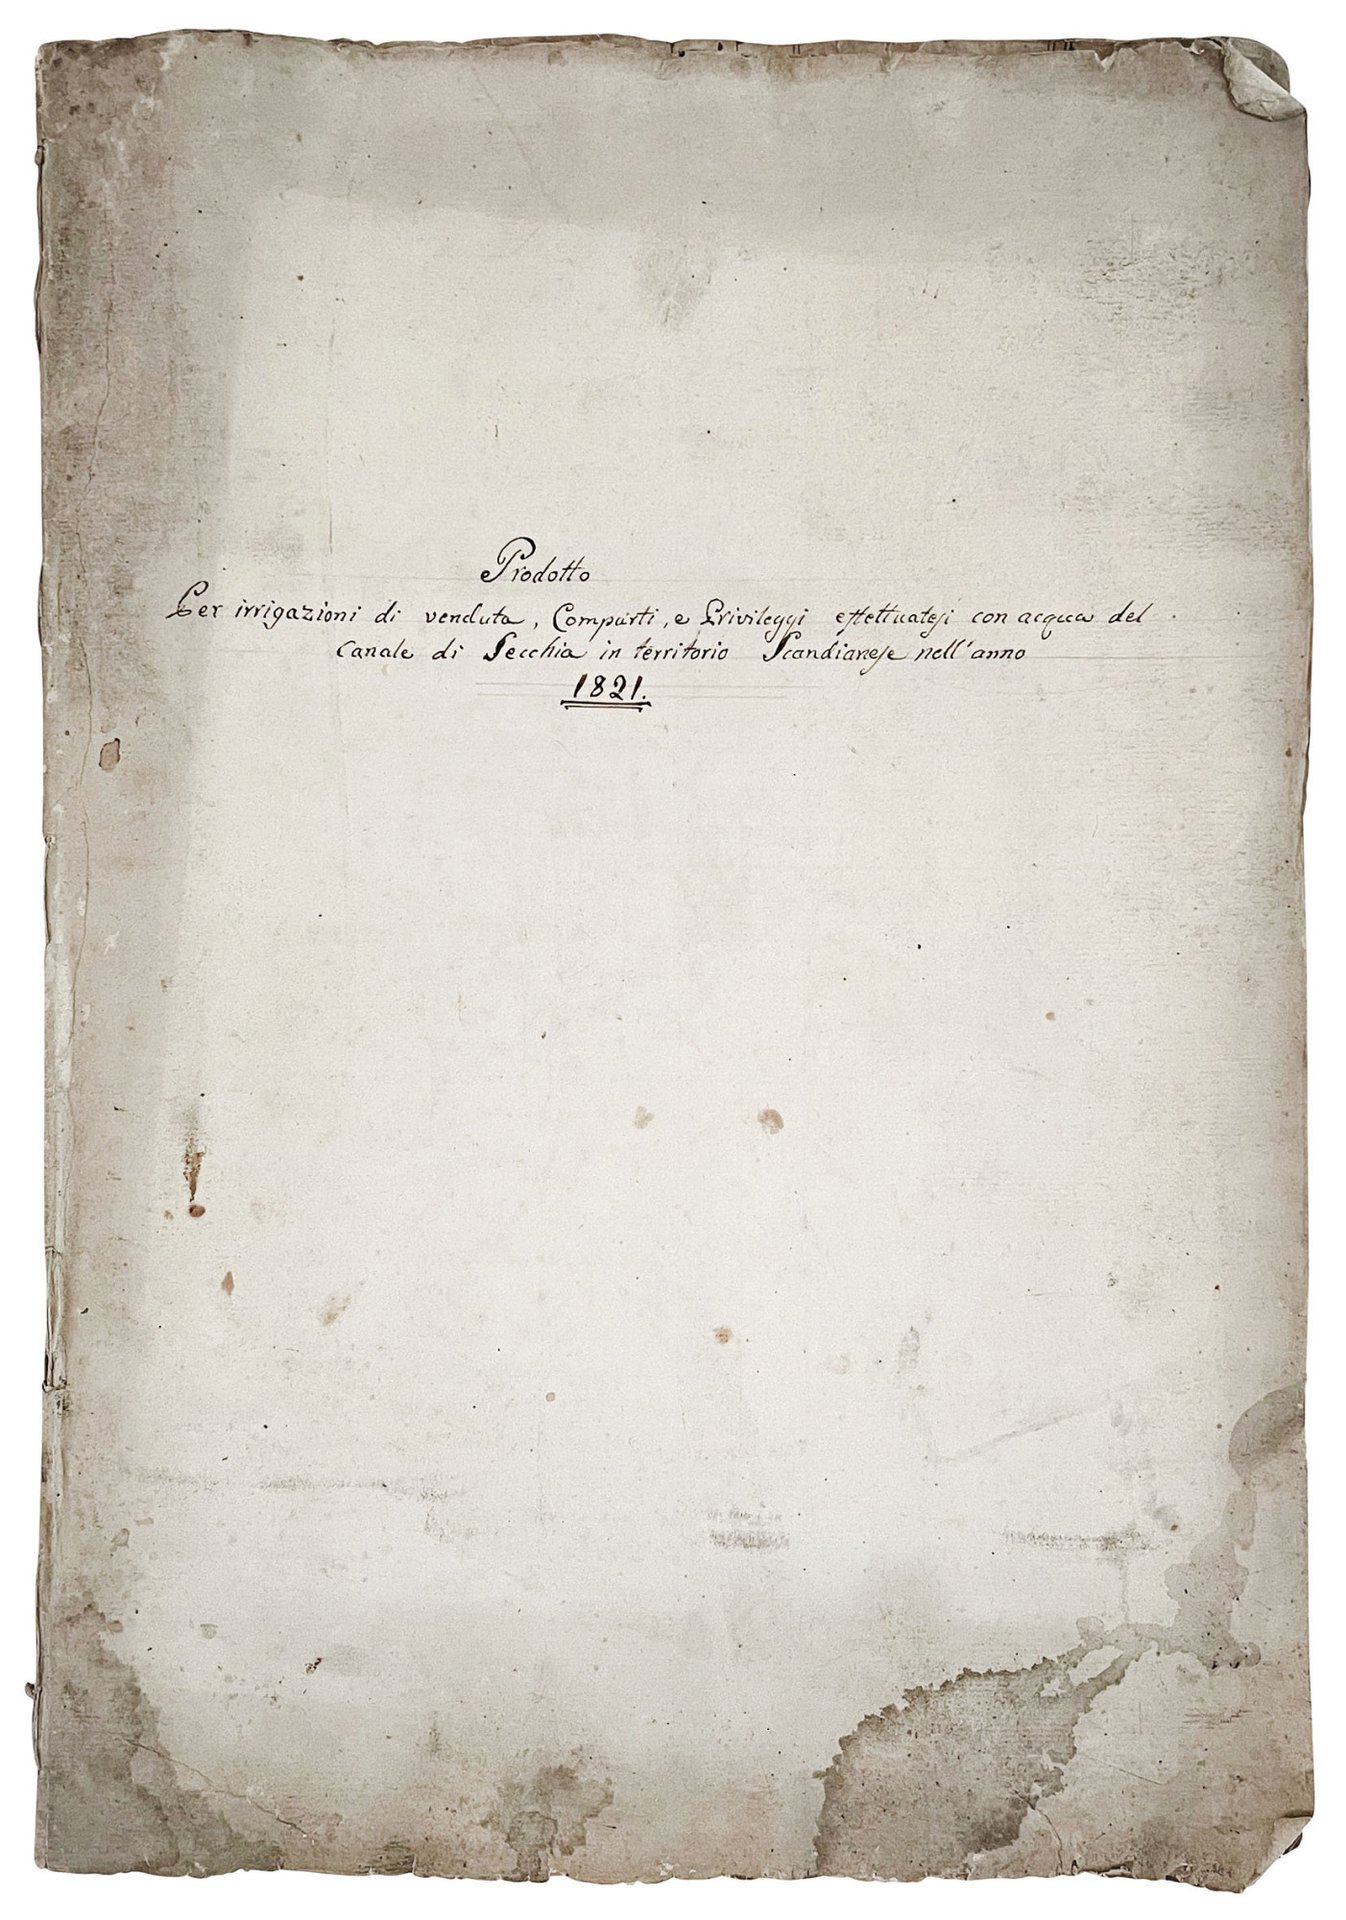 Prodotto
Per irrigazioni di venduta, Comparti, e Privileggi effettuatesi con acqua del
Canale di Secchia in territorio Scandianese nell'anno
1821.